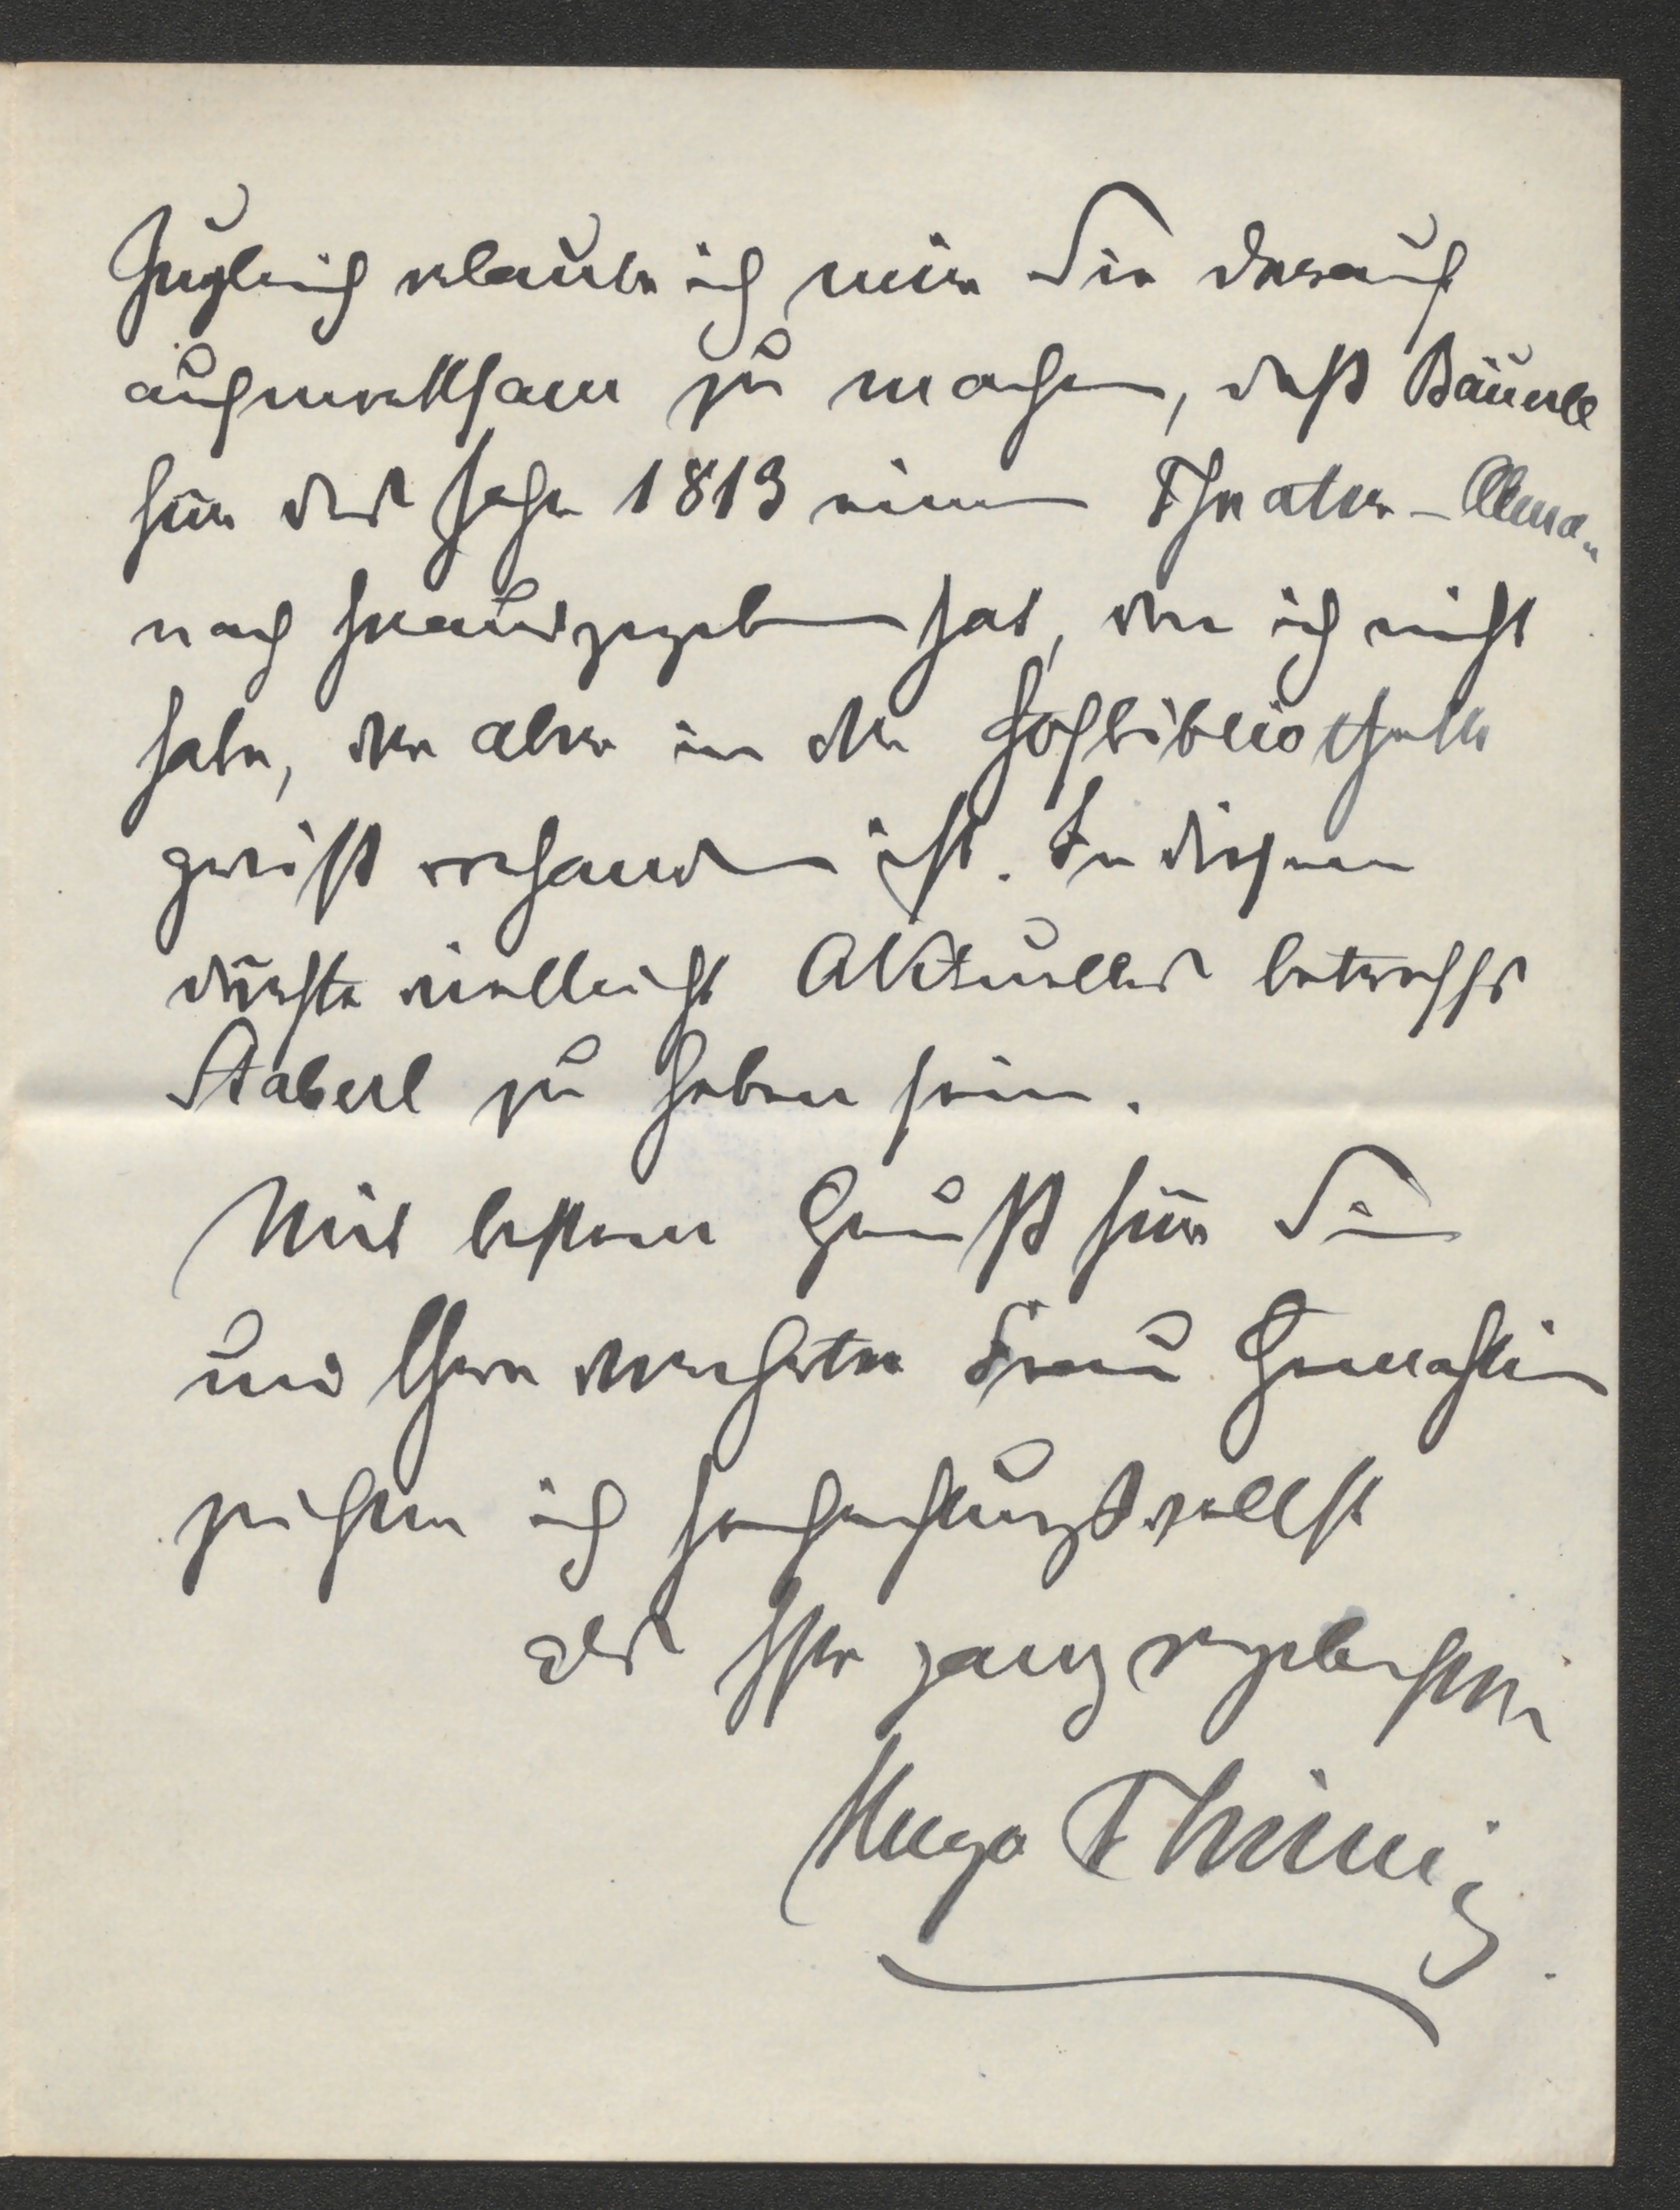 Zugleich erlaube ich mir Sie darauf
aufmerksam zu machen, daß Bäuerle
für das Jahr 1813 einen Theater-Alma„
nach herausgegeben hat, den ich nicht
habe, der aber in der Hofbibliothek
gewiß vorhanden ist. In diesem
dürfte vielleicht Aktuelles betreffs
Staberl zu haben sein.
Mit bestem Gruß für Sie
und Ihre verehrte Frau Gemahlin
zeichne ich hochachtungsvollst
als Ihr ganz ergebenster
Hugo Thimig